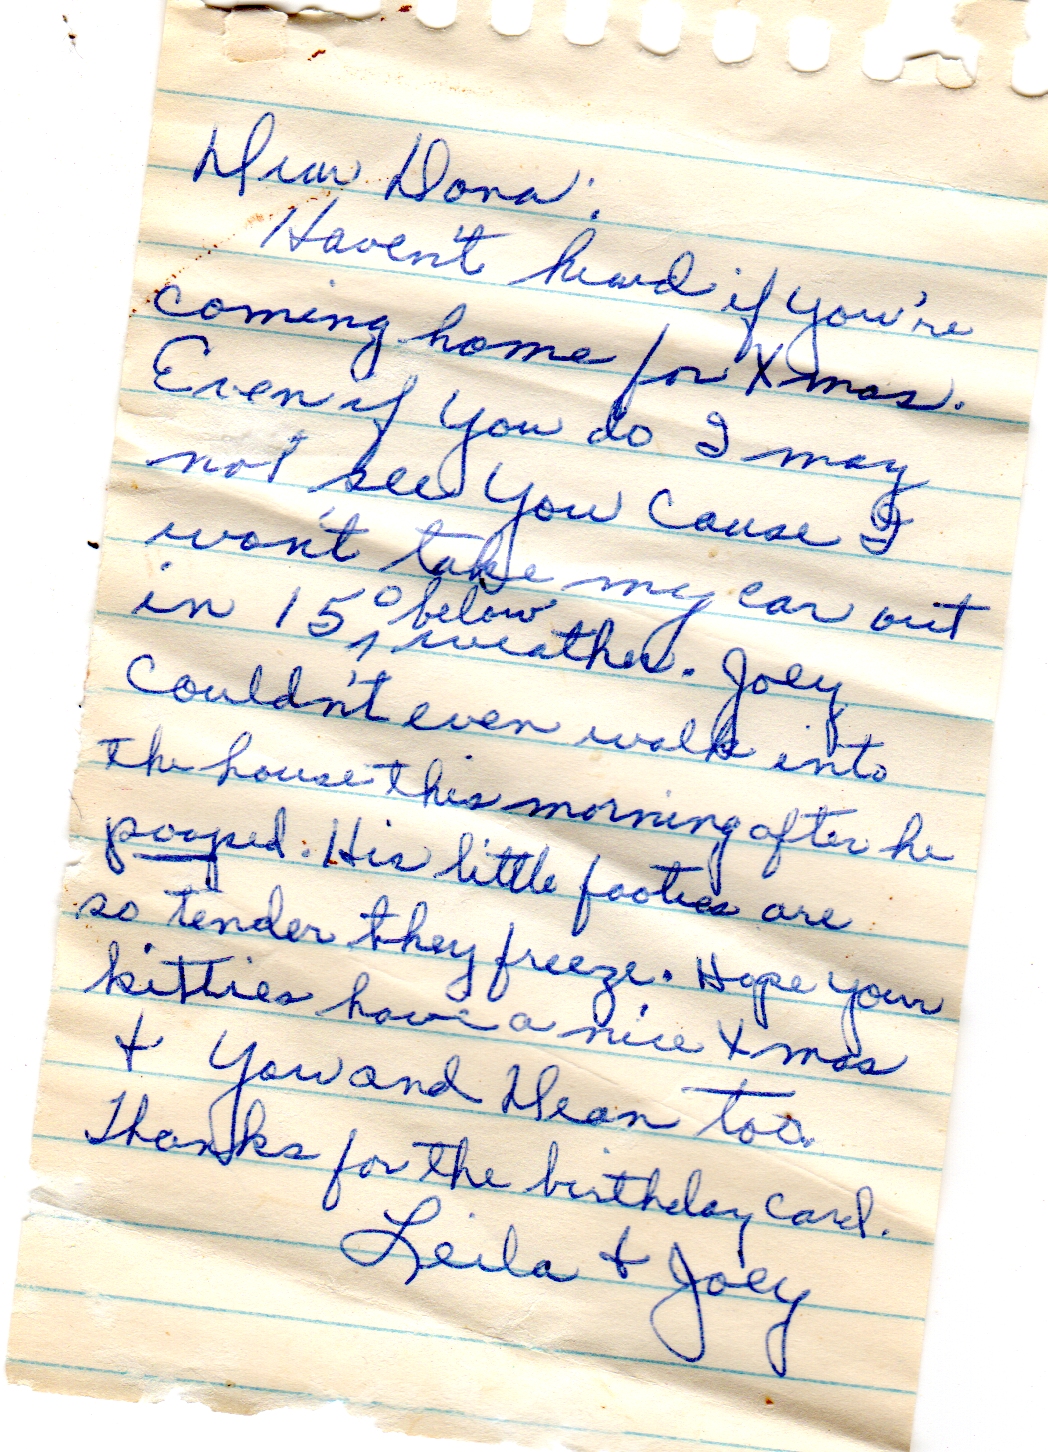 Dear Dona:
Haven't heard if you're
coming home for Xmas.
Even if you do I may
not see you cause I
won't take my car out
in 15° below weather. Joey
couldn't even walk into
the house this morning after he
pooped. His little footies are
so tender they freeze. Hope your
kitties have a nice Xmas
+ you and Dean too.
Thanks for the birthday card.
Leila + Joey